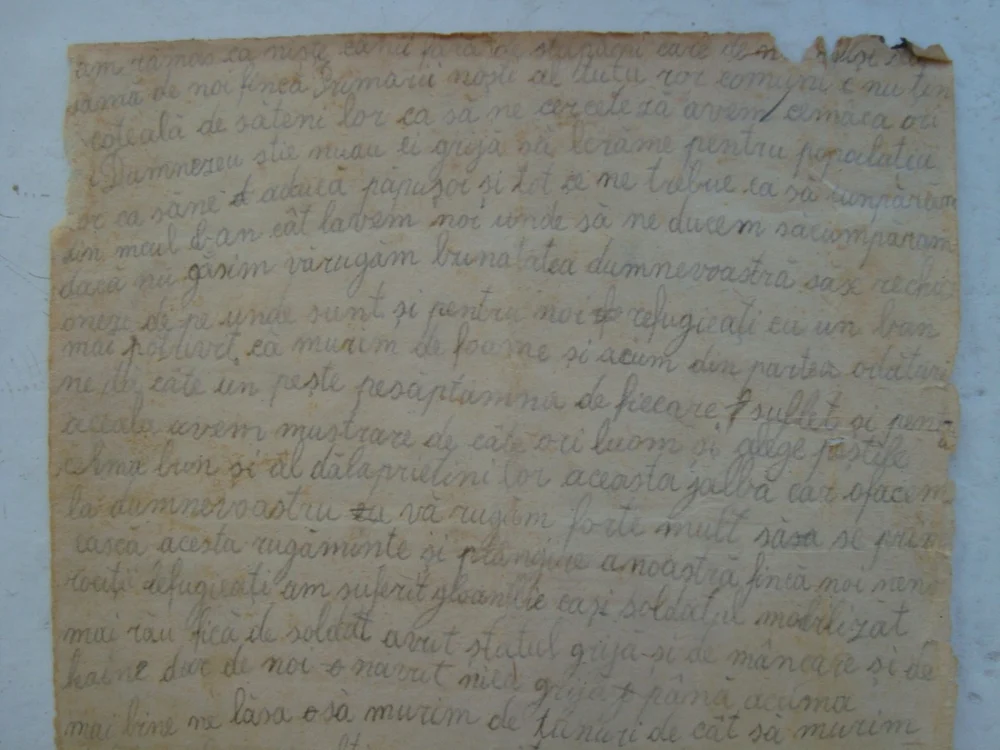 am rămas ca niște câni fără de stăpâni care de
sama de noi fincă Primarii noști al tutu ror comuni i nu țin
coteală de săteni lor ca să ne cerceteză avem cemâca ori
Dumnezeu știe nuau ei grijă să lcrăme pentru popalatiu
or ca săne aducă păpușor și tot ce ne trebue ca să cunpărăm
din micul ban cât lavem noi unde să ne ducem săcumpăram
dacă nu găsim vărugăm bunabtea dumnevoastră săse rechi
oneze de pe unde sunt și pentru noi refugieați cu un ban
mai potrivit că murim de foame și acum din partea odături
ne da câte un pește pesăptamna de fiecare suflet și pent
aceala avem mustrare de câte ori luom și alege peștile
celmai bun și âl dălaprieteni lor aceasta jalbă car ofacem
la dumnevoastru vă rugăm forte mult săsa se prim
ească acesta rugăminte și plângire anoastră fincă noi neno
rociții refugieați am suferit gloanțile cași soldatul mobilizat
mai rău fică de soldat avut statul grijă și de mâncare și de
haine dar de noi navut nică grijă până acuma
mai bine ne lăsa să murim de tunuri de cât să murim